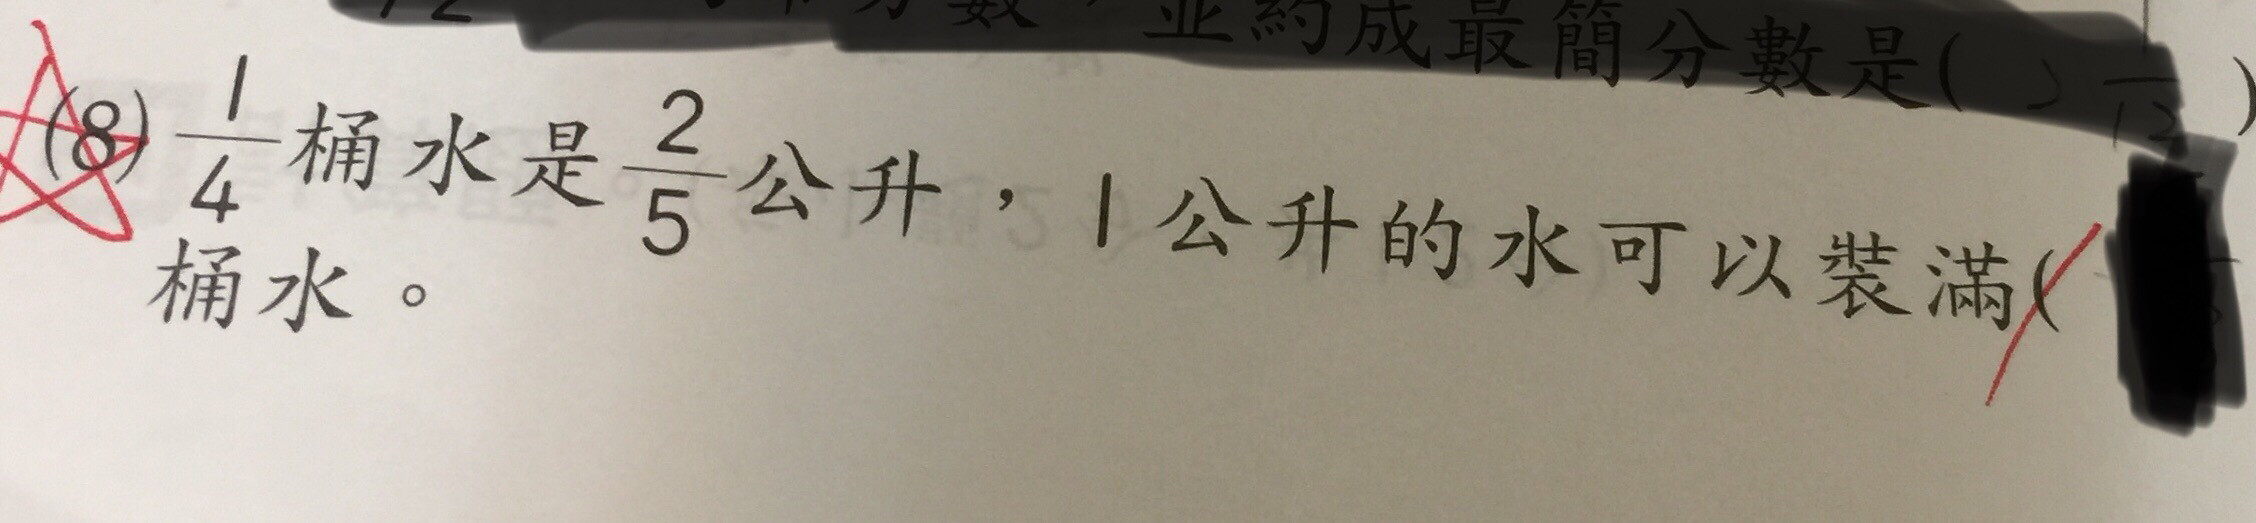 並約成最簡分數是( )
(8) 1/4 桶水是 2/5 公升,1公升的水可以裝滿(
桶水。